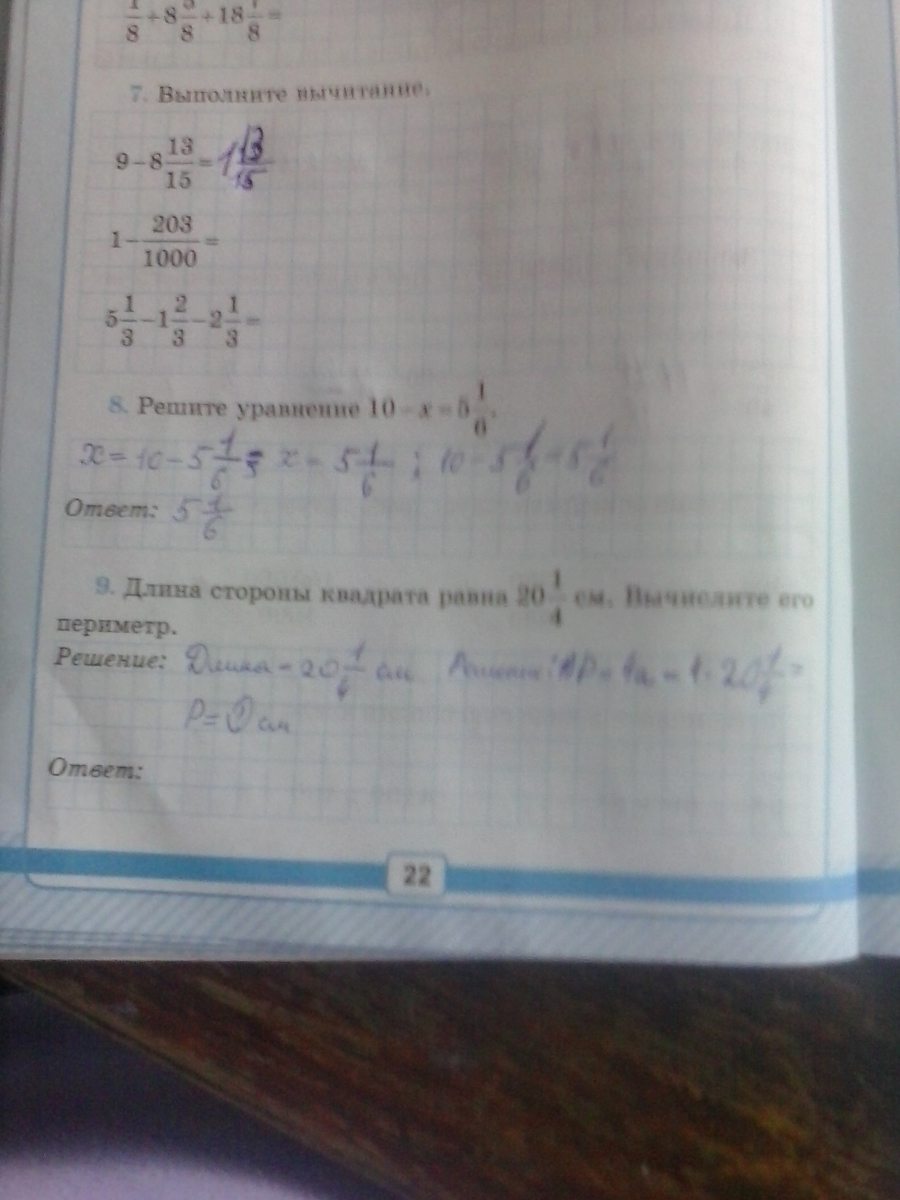 1/8 + 8 5/8 + 18 7/8 =
7. Выполните вычитание.
9 − 8 13/15 = 1 13/15
1 − 203/1000 =
5 1/3 − 1 2/3 − 2 1/3 =
8. Решите уравнение 10 − x = 5 1/6.
x = 10 − 5 1/6 = x = 5 1/6 ; 10 − 5 1/6 = 5 1/6
Ответ: 5 1/6
9. Длина стороны квадрата равна 20 1/4 см. Вычислите его
периметр.
Решение: Длина = 20 1/4 см
P = см
Ответ:
22